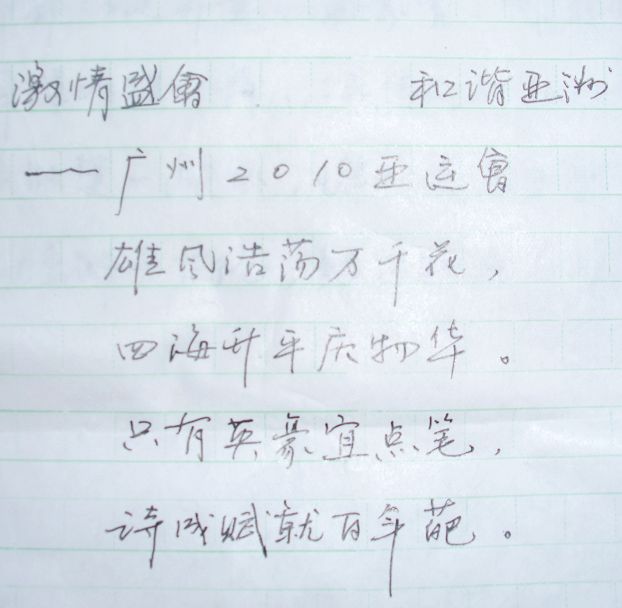 激情盛會 和谐亚洲
——广州2010亚运會
雄风浩荡万千花，
四海升平庆物华。
只有英豪宜点笔，
诗成赋就百年葩。